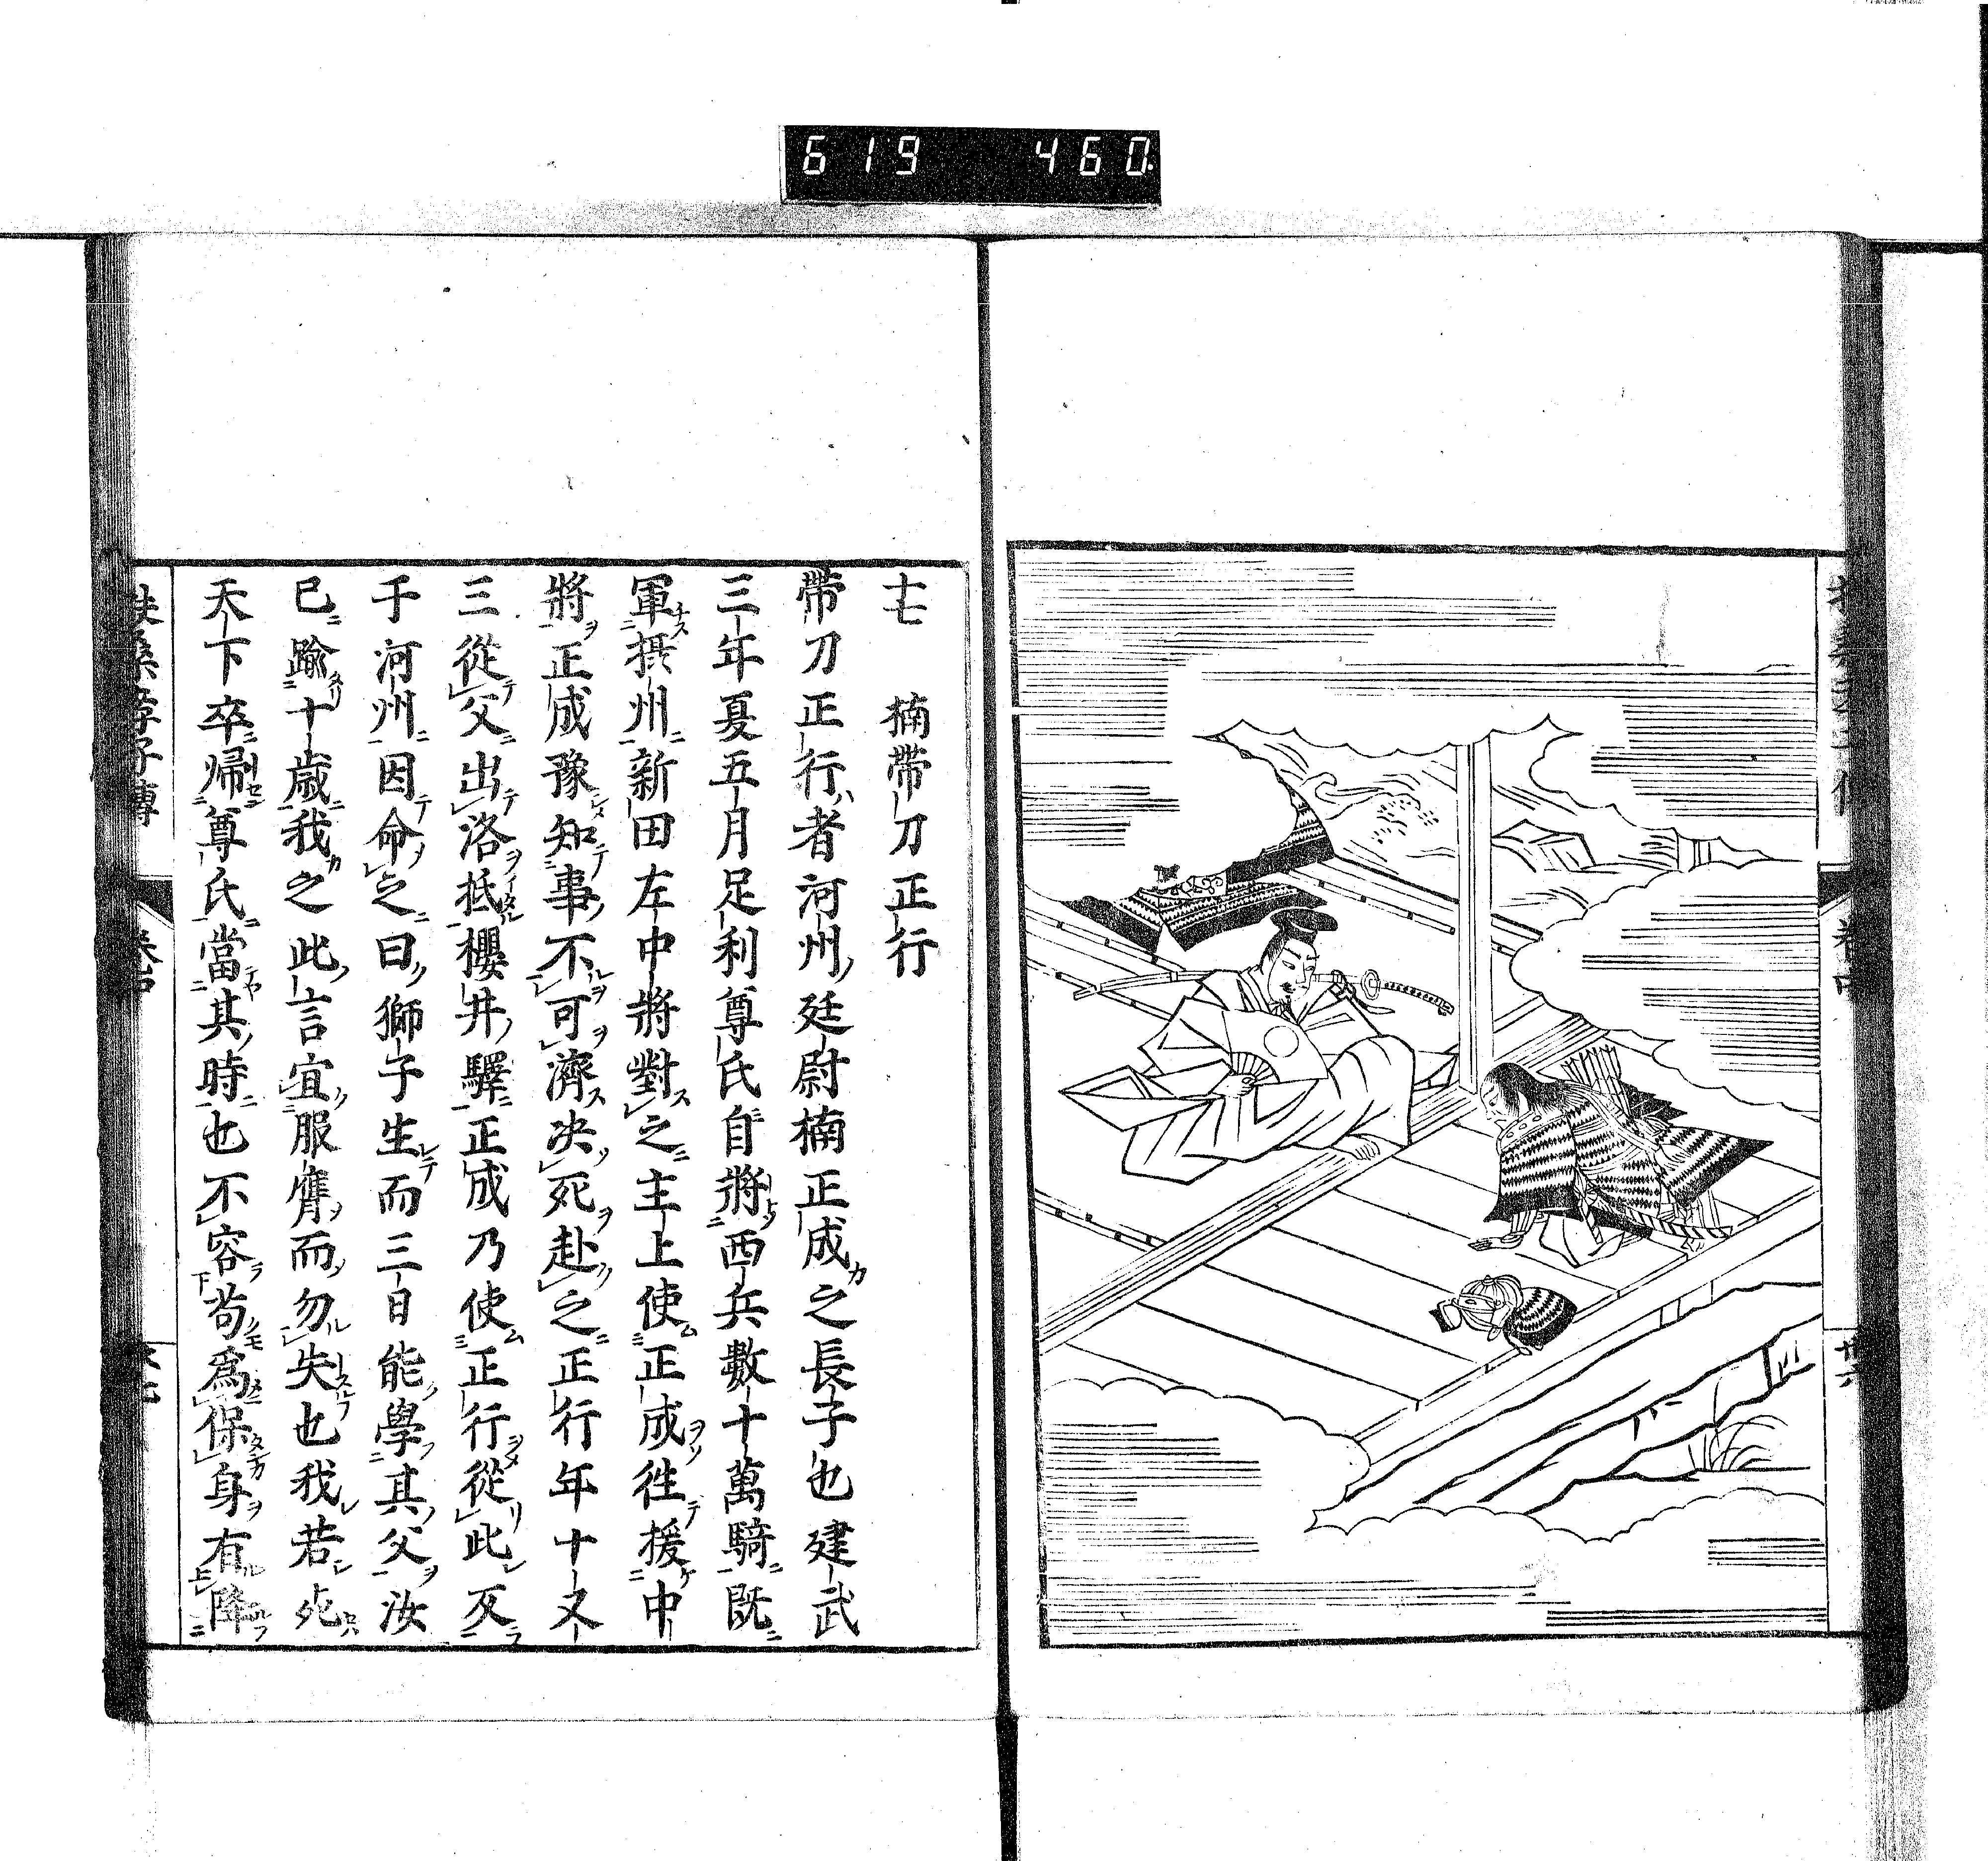 619 460.
十七 楠帶刀正行
帶刀正行者河州廷尉楠正成之長子也建武
三年夏五月足利尊氏自將西兵數十萬騎既
軍摂州新田左中將對之主上使正成往援中
將正成豫知事不可濟決死赴之正行年十又
三從父出洛抵櫻井驛正成乃使正行從此反
于河州因命之曰獅子生而三日能學其父汝
已踰十歲我之此言宜服膺而勿失也我若死
天下卒歸尊氏當其時也不容苟爲保身有降
扶桑孝子傳